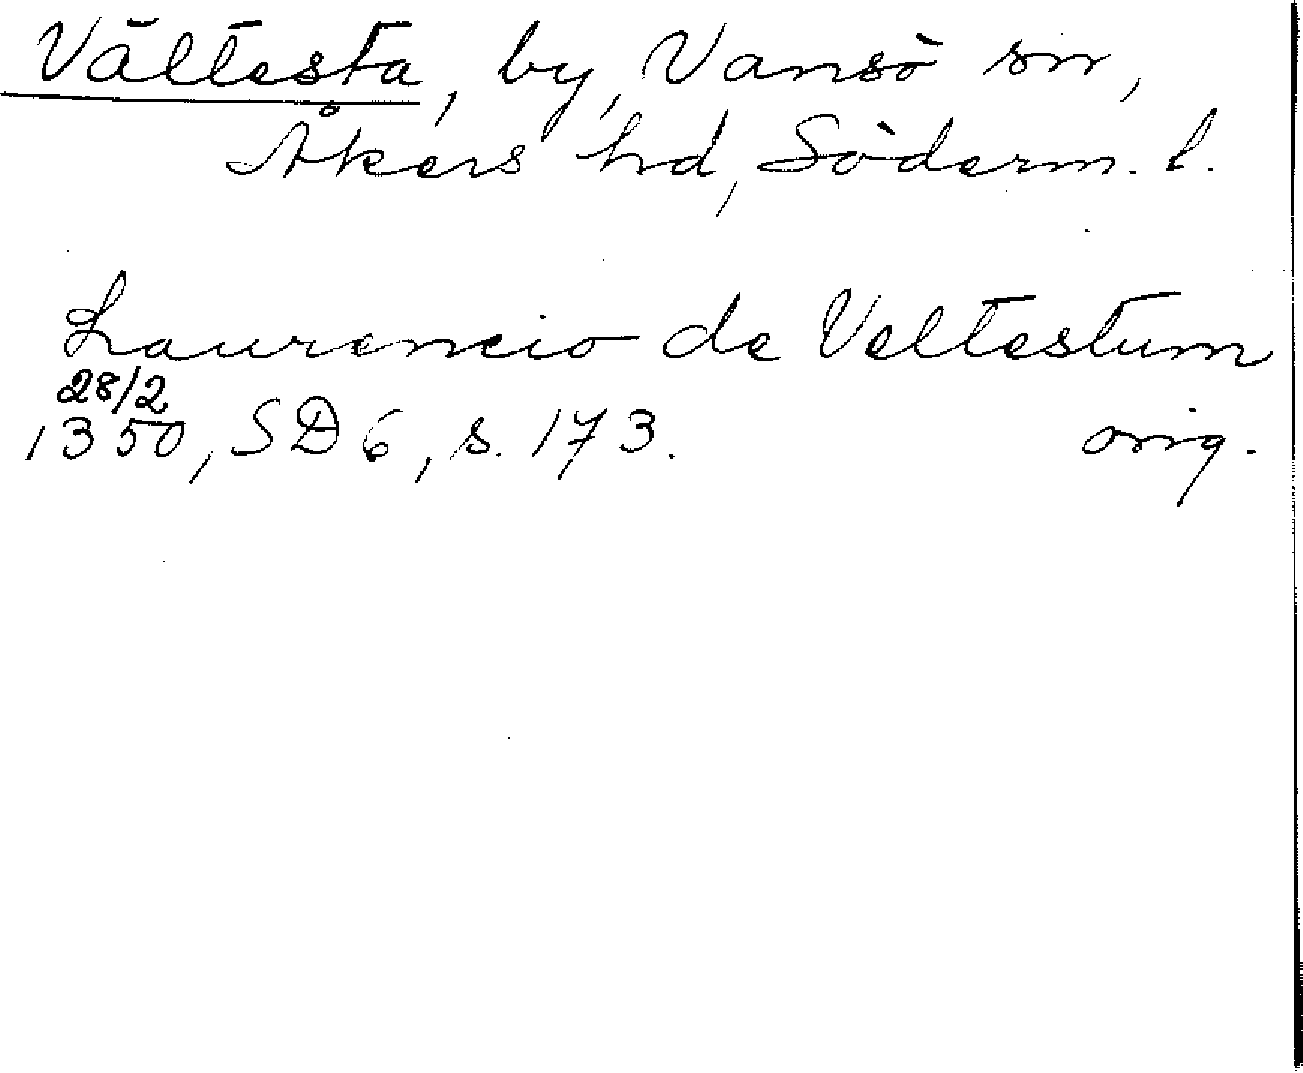 Vältesta, by, Vansö sn,
Åkers hd, Söderm. l.
Laurencio de Veltestum
28/2
1350, SD 6, s. 173. orig.